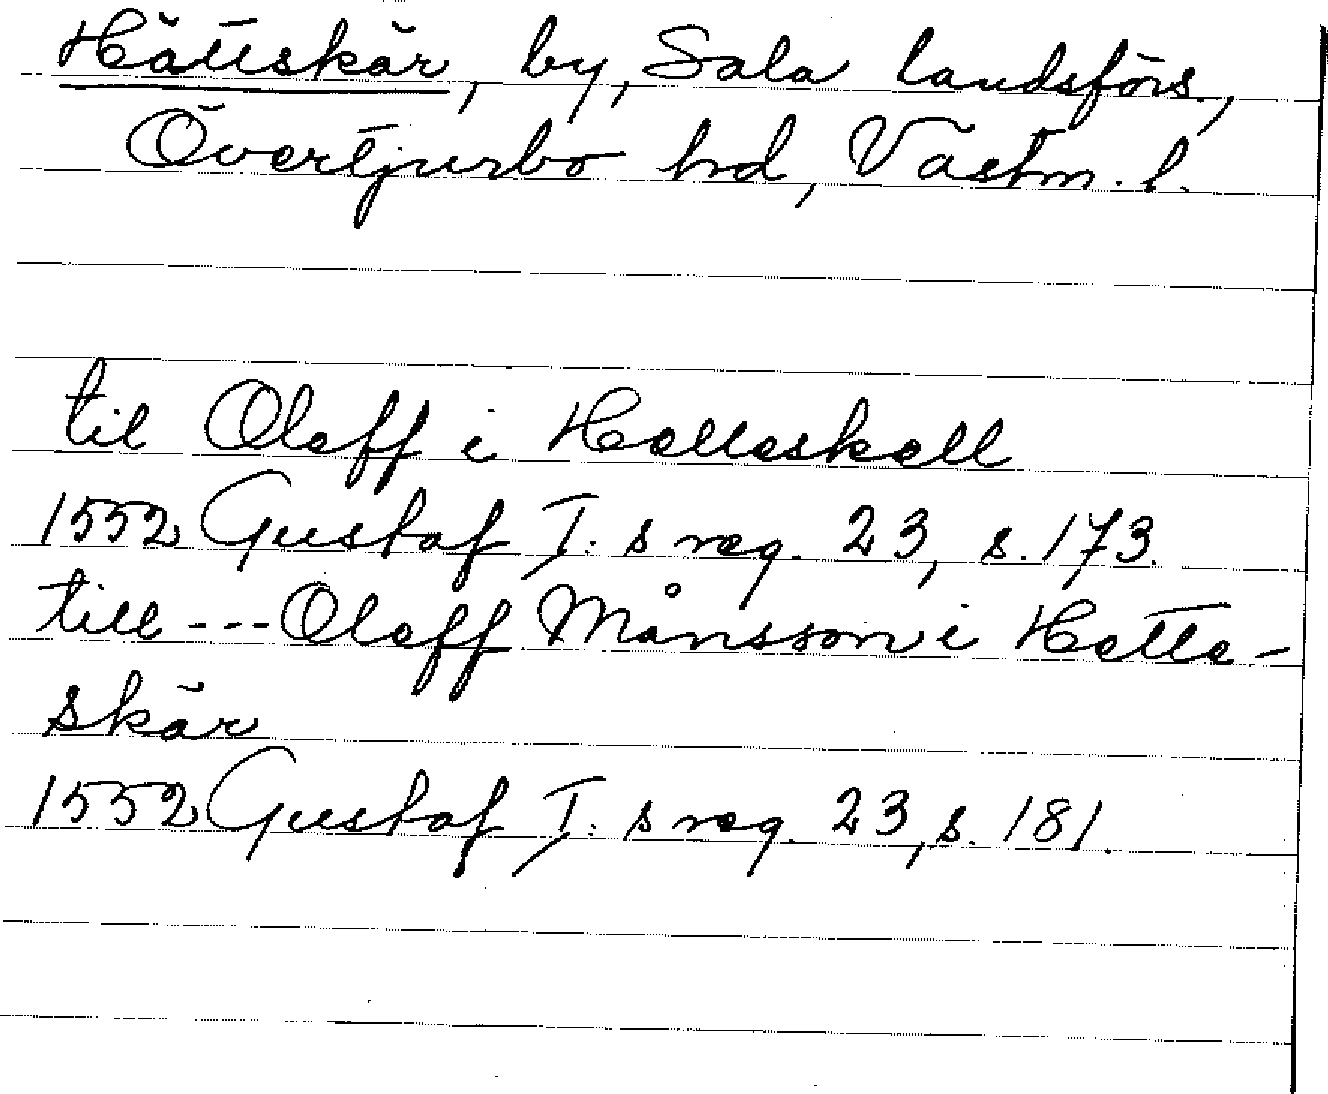 Hättskär, by, Sala landsförs.,
Övertjurbo hd, Västm. l.
til Oleff i Helleskell
1552 Gustaf I:s reg. 23, s. 173.
till --- Oleff Månsson i Hette-
skär
1552 Gustaf I:s reg. 23, s. 181.